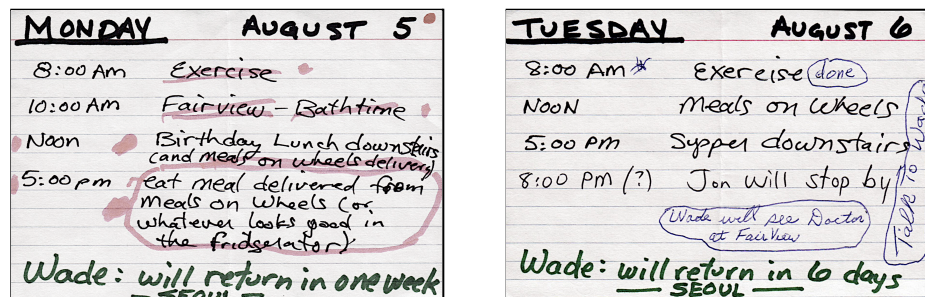 MONDAY AUGUST 5
8:00 Am Exercise
10:00 Am Fairview - Bathtime
Noon Birthday Lunch downstairs
(and meals on wheels delivery)
5:00 pm eat meal delivered from
meals on Wheels (or
whatever looks good in
the fridgerator)
Wade: will return in one week
— SEOUL —
TUESDAY AUGUST 6
8:00 AM * Exercise done
NOON Meals on Wheels
5:00 PM Supper downstairs
8:00 PM (?) Jon will stop by
Wade will see Doctor
at FairView
Talk To Wade
Wade: will return in 6 days
— SEOUL —